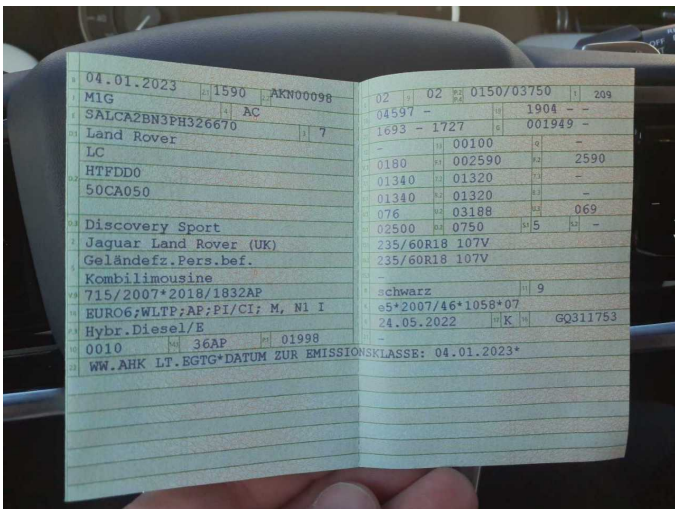 B 04.01.2023 2.1 1590 2.2 AKN00098
J M1G 4 AC
E SALCA2BN3PH326670 3 7
D.1 Land Rover
LC
D.2 HTFDD0
50CA050
D.3 Discovery Sport
2 Jaguar Land Rover (UK)
5 Geländefz.Pers.bef.
Kombilimousine
V.9 715/2007*2018/1832AP
14 EURO6;WLTP;AP;PI/CI; M, N1 I
P.3 Hybr.Diesel/E
10 0010 14.1 36AP P.1 01998
22 WW.AHK LT.EGTG*DATUM ZUR EMISSIONSKLASSE: 04.01.2023*
02 9 02 P.2 P.4 0150/03750 T 209
04597 - 19 1904 - -
1693 - 1727 G 001949 -
- 13 00100 Q -
0180 F.1 002590 F.2 2590
01340 7.2 01320 7.3 -
01340 8.2 01320 8.3 -
076 U.2 03188 U.3 069
02500 O.2 0750 S.1 5 S.2 -
235/60R18 107V
235/60R18 107V
-
schwarz 11 9
e5*2007/46*1058*07
24.05.2022 17 K 16 GQ311753
-
OFF